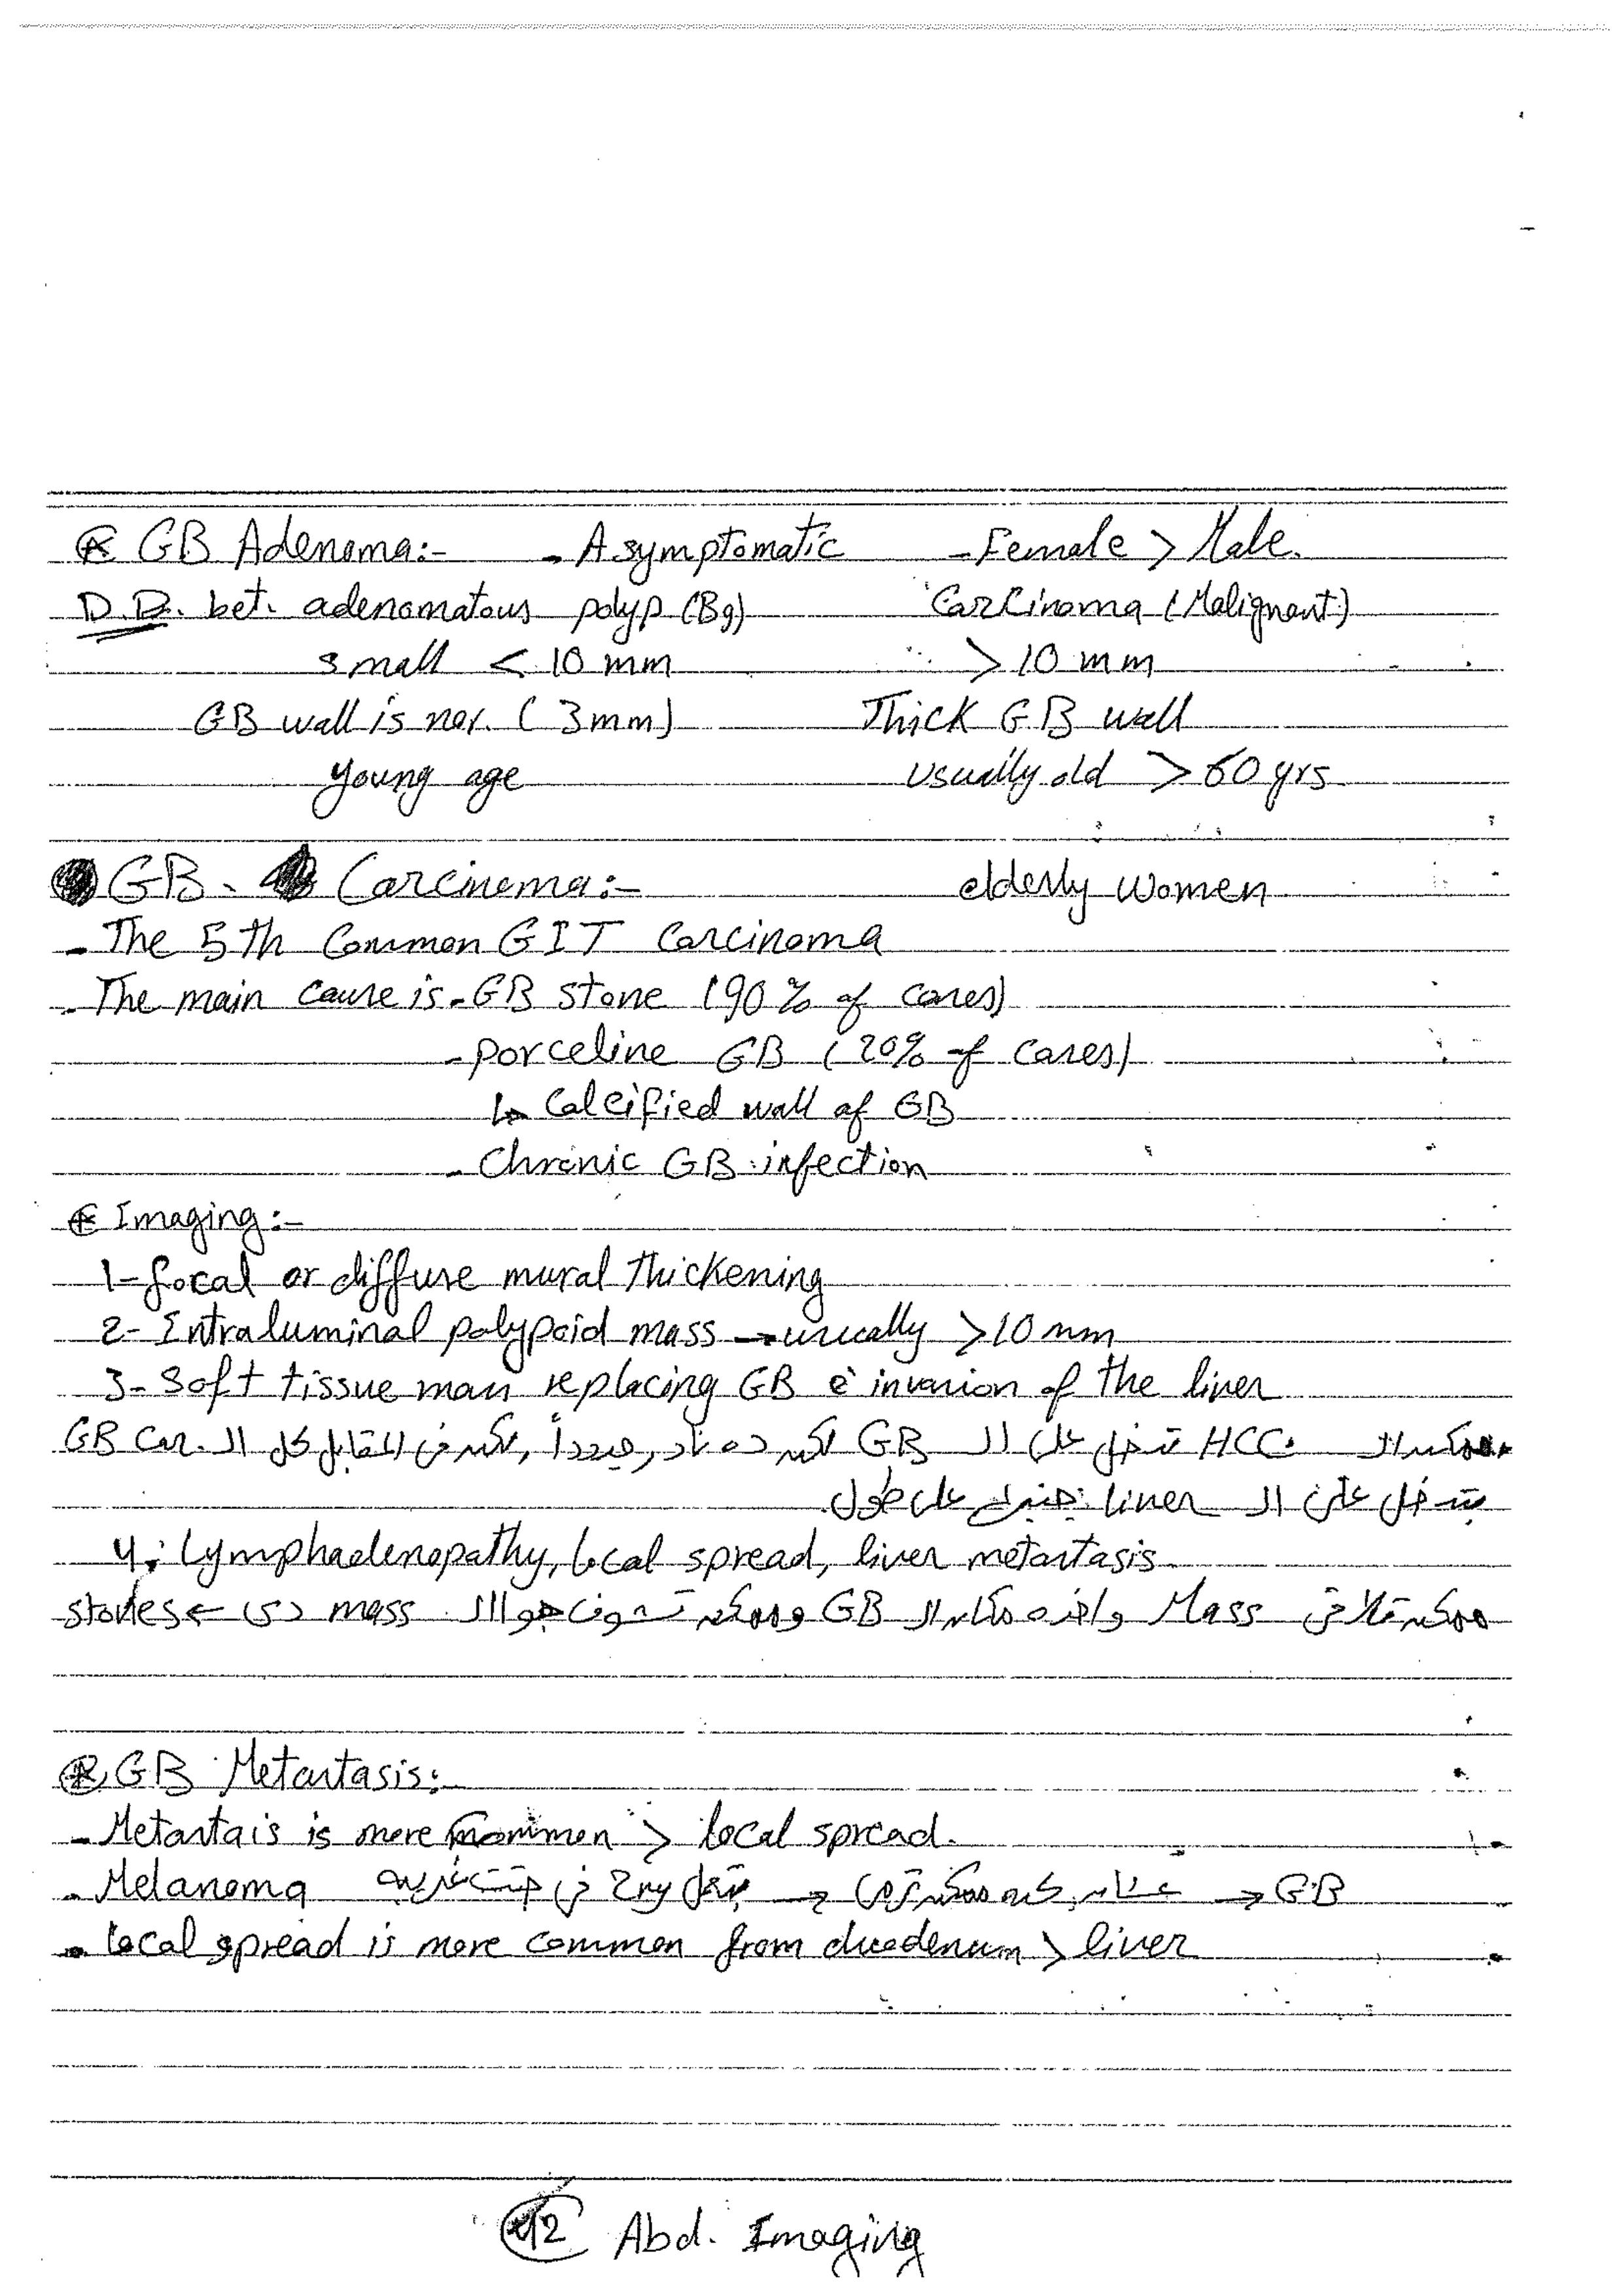 GB Adenoma:- - Asymptomatic - Female > Male.
D.D. bet. adenomatous polyp (Bg) Carcinoma (Malignant)
small < 10 mm > 10 mm
GB wall is nor. (3mm) Thick GB wall
young age usually old > 60 yrs
GB. Carcinoma:- elderly women
- The 5th Common GIT Carcinoma
- The main cause is - GB stone (90% of cases)
- porceline GB (20% of cases)
↳ Calcified wall of GB
- Chronic GB infection
Imaging:-
1- focal or diffuse mural thickening
2- Intraluminal polypoid mass → usually >10 mm
3- Soft tissue mass replacing GB c̄ invasion of the liver
ممكن الـ HCC تدخل على الـ GB لكن ده نادر جداً, لكن في المقابل كل الـ GB Car.
بتدخل على الـ liver على طول.
4- Lymphadenopathy, local spread, liver metastasis
ممكن تلاقي Mass واخده مكان الـ GB وممكن تشوف جوا الـ mass دي ← stones
GB Metastasis:
- Metastais is more Common > local spread.
- Melanoma علشان كده ممكن تروح → GB
- local spread is more common from duodenum > liver
42 Abd. Imaging